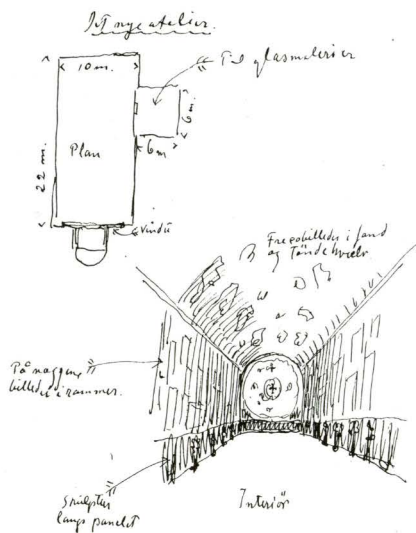 nye atelier.
10 m.
Til glasmalerier
22 m.
Plan
6 m.
6 m
vindu
Frescobilleder i fond
og Töndehvælv.
På væggene
billeder i rammer.
Skulptur
langs panelet
Interiör